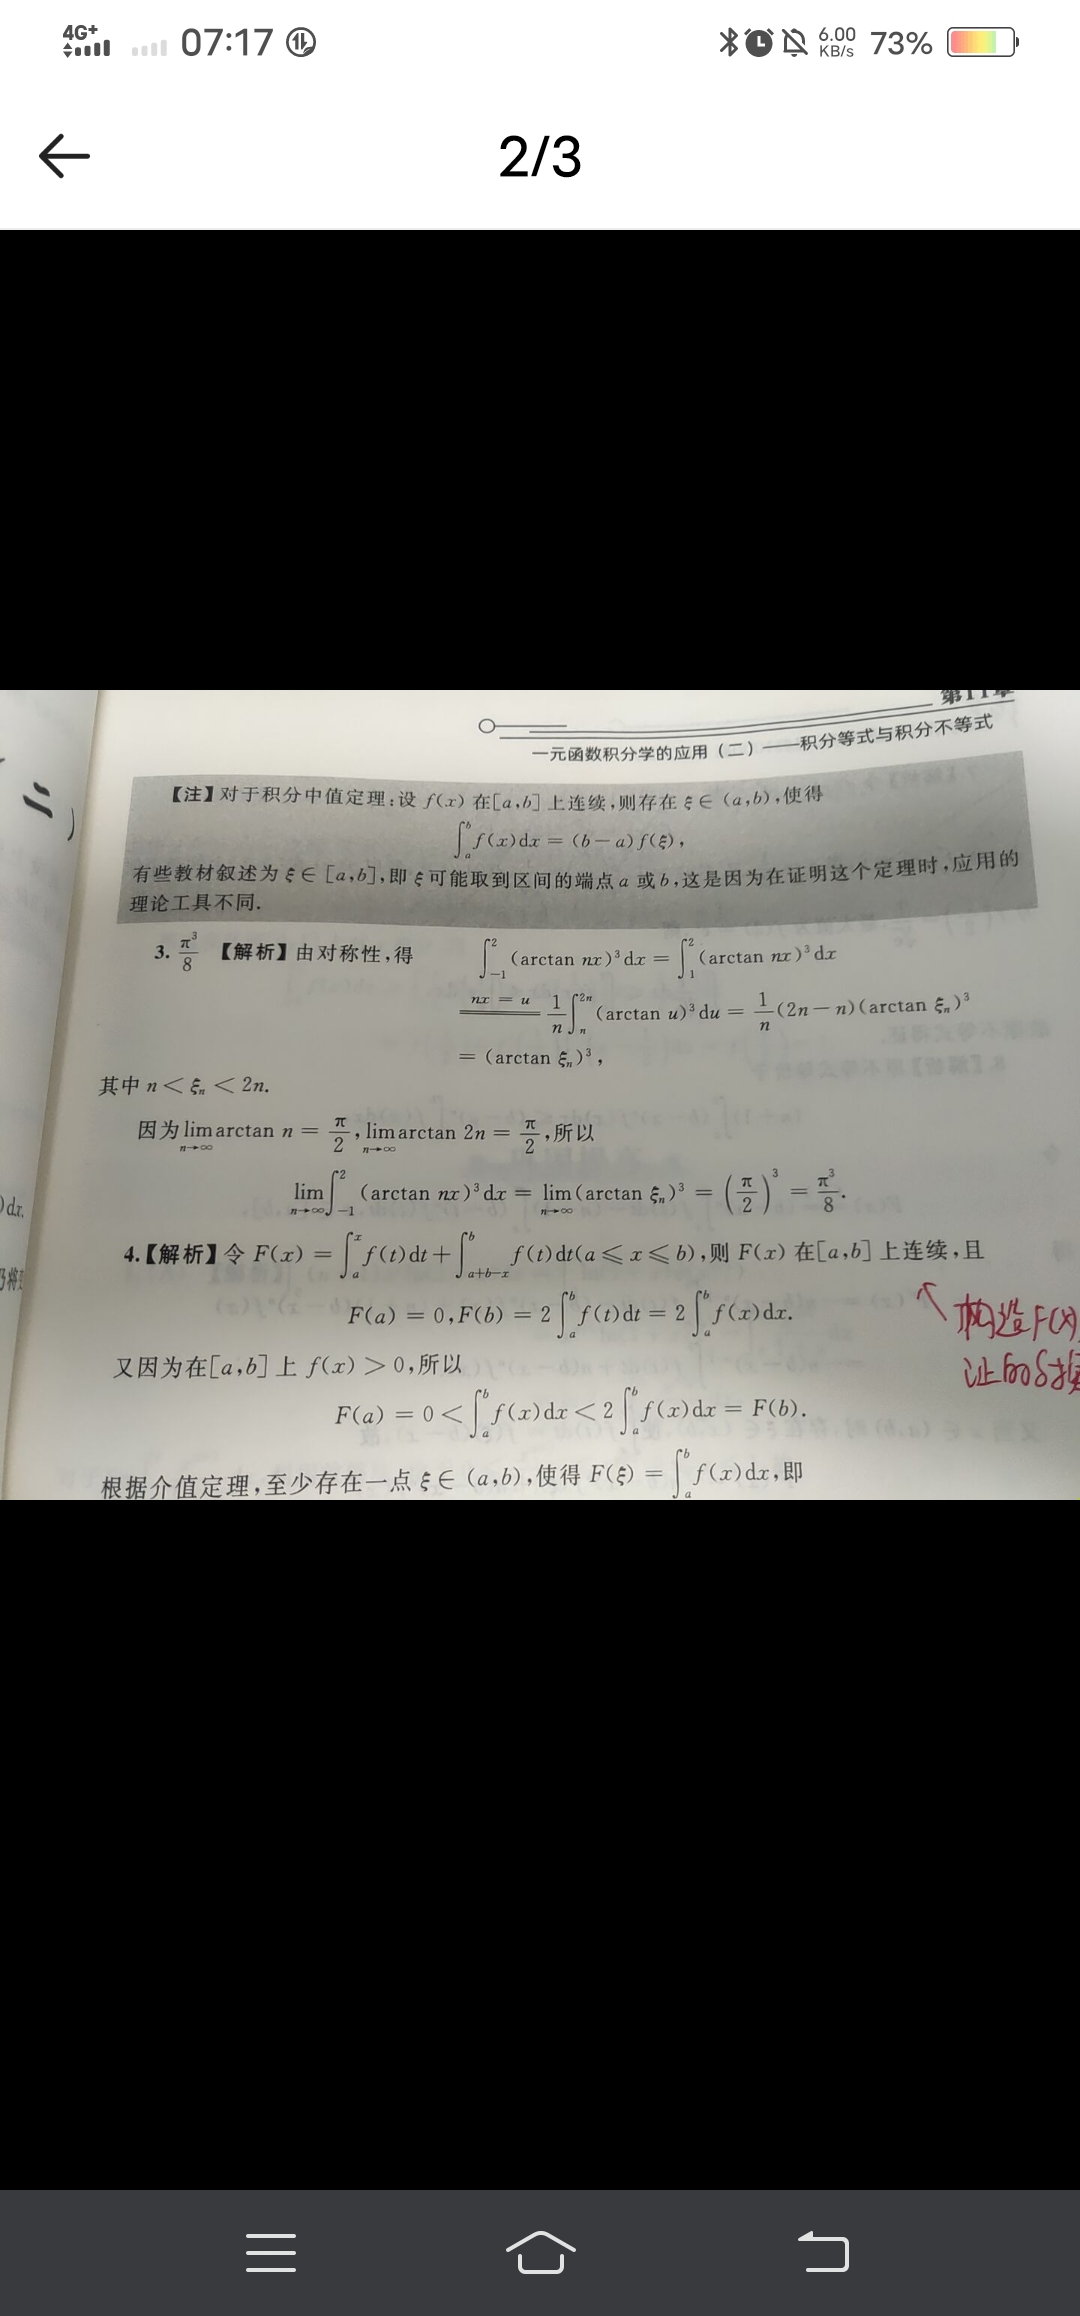 4G+ 07:17 6.00 KB/s 73%
2/3
第11章
一元函数积分学的应用(二)——积分等式与积分不等式
【注】对于积分中值定理:设 f(x) 在[a,b]上连续,则存在 ξ∈(a,b),使得
∫_a^b f(x)dx = (b-a)f(ξ),
有些教材叙述为 ξ∈[a,b],即 ξ 可能取到区间的端点 a 或 b,这是因为在证明这个定理时,应用的
理论工具不同.
3. π³/8 【解析】由对称性,得 ∫_{-1}^2 (arctan nx)³dx = ∫_1^2 (arctan nx)³dx
nx = u 1/n ∫_n^{2n} (arctan u)³du = 1/n (2n-n)(arctan ξₙ)³
= (arctan ξₙ)³,
其中 n < ξₙ < 2n.
因为 lim_{n→∞} arctan n = π/2, lim_{n→∞} arctan 2n = π/2,所以
lim_{n→∞} ∫_{-1}^2 (arctan nx)³dx = lim_{n→∞} (arctan ξₙ)³ = (π/2)³ = π³/8.
4.【解析】令 F(x) = ∫_a^x f(t)dt + ∫_{a+b-x}^b f(t)dt(a ⩽ x ⩽ b),则 F(x) 在[a,b]上连续,且
F(a) = 0,F(b) = 2∫_a^b f(t)dt = 2∫_a^b f(x)dx.
构造F(x)
又因为在[a,b]上 f(x) > 0,所以
F(a) = 0 < ∫_a^b f(x)dx < 2∫_a^b f(x)dx = F(b).
根据介值定理,至少存在一点 ξ∈(a,b),使得 F(ξ) = ∫_a^b f(x)dx,即
二)
)dx.